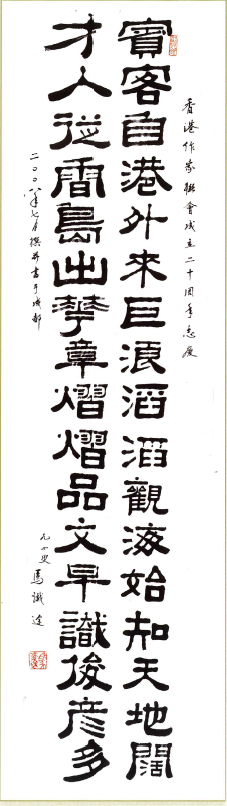 香港作家聯會成立二十周年志慶
賓客自港外來巨浪滔滔觀海始知天地闊
才人從香島出華章熠熠品文早識俊彥多
二〇〇八年七月撰并書于成都
九四叟 馬識途